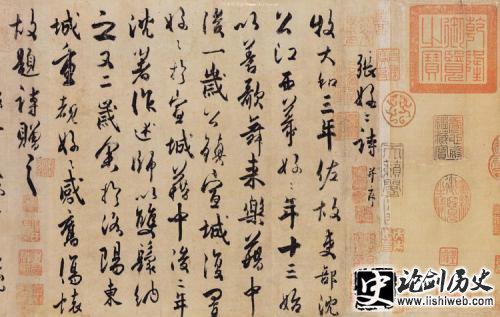 乾隆御覽之寶
張好〻詩 并序
牧大和三年佐故吏部沈
公江西幕好〻年十三始
以善歌舞来樂籍中
後一歲公鎮宣城復置
好〻於宣城籍中後二年
沈著作述師以雙鬟納
之又二歲余於洛陽東
城重覩好〻感舊傷懷
故題詩贈之
史 论剑历史
www.lishiweb.com